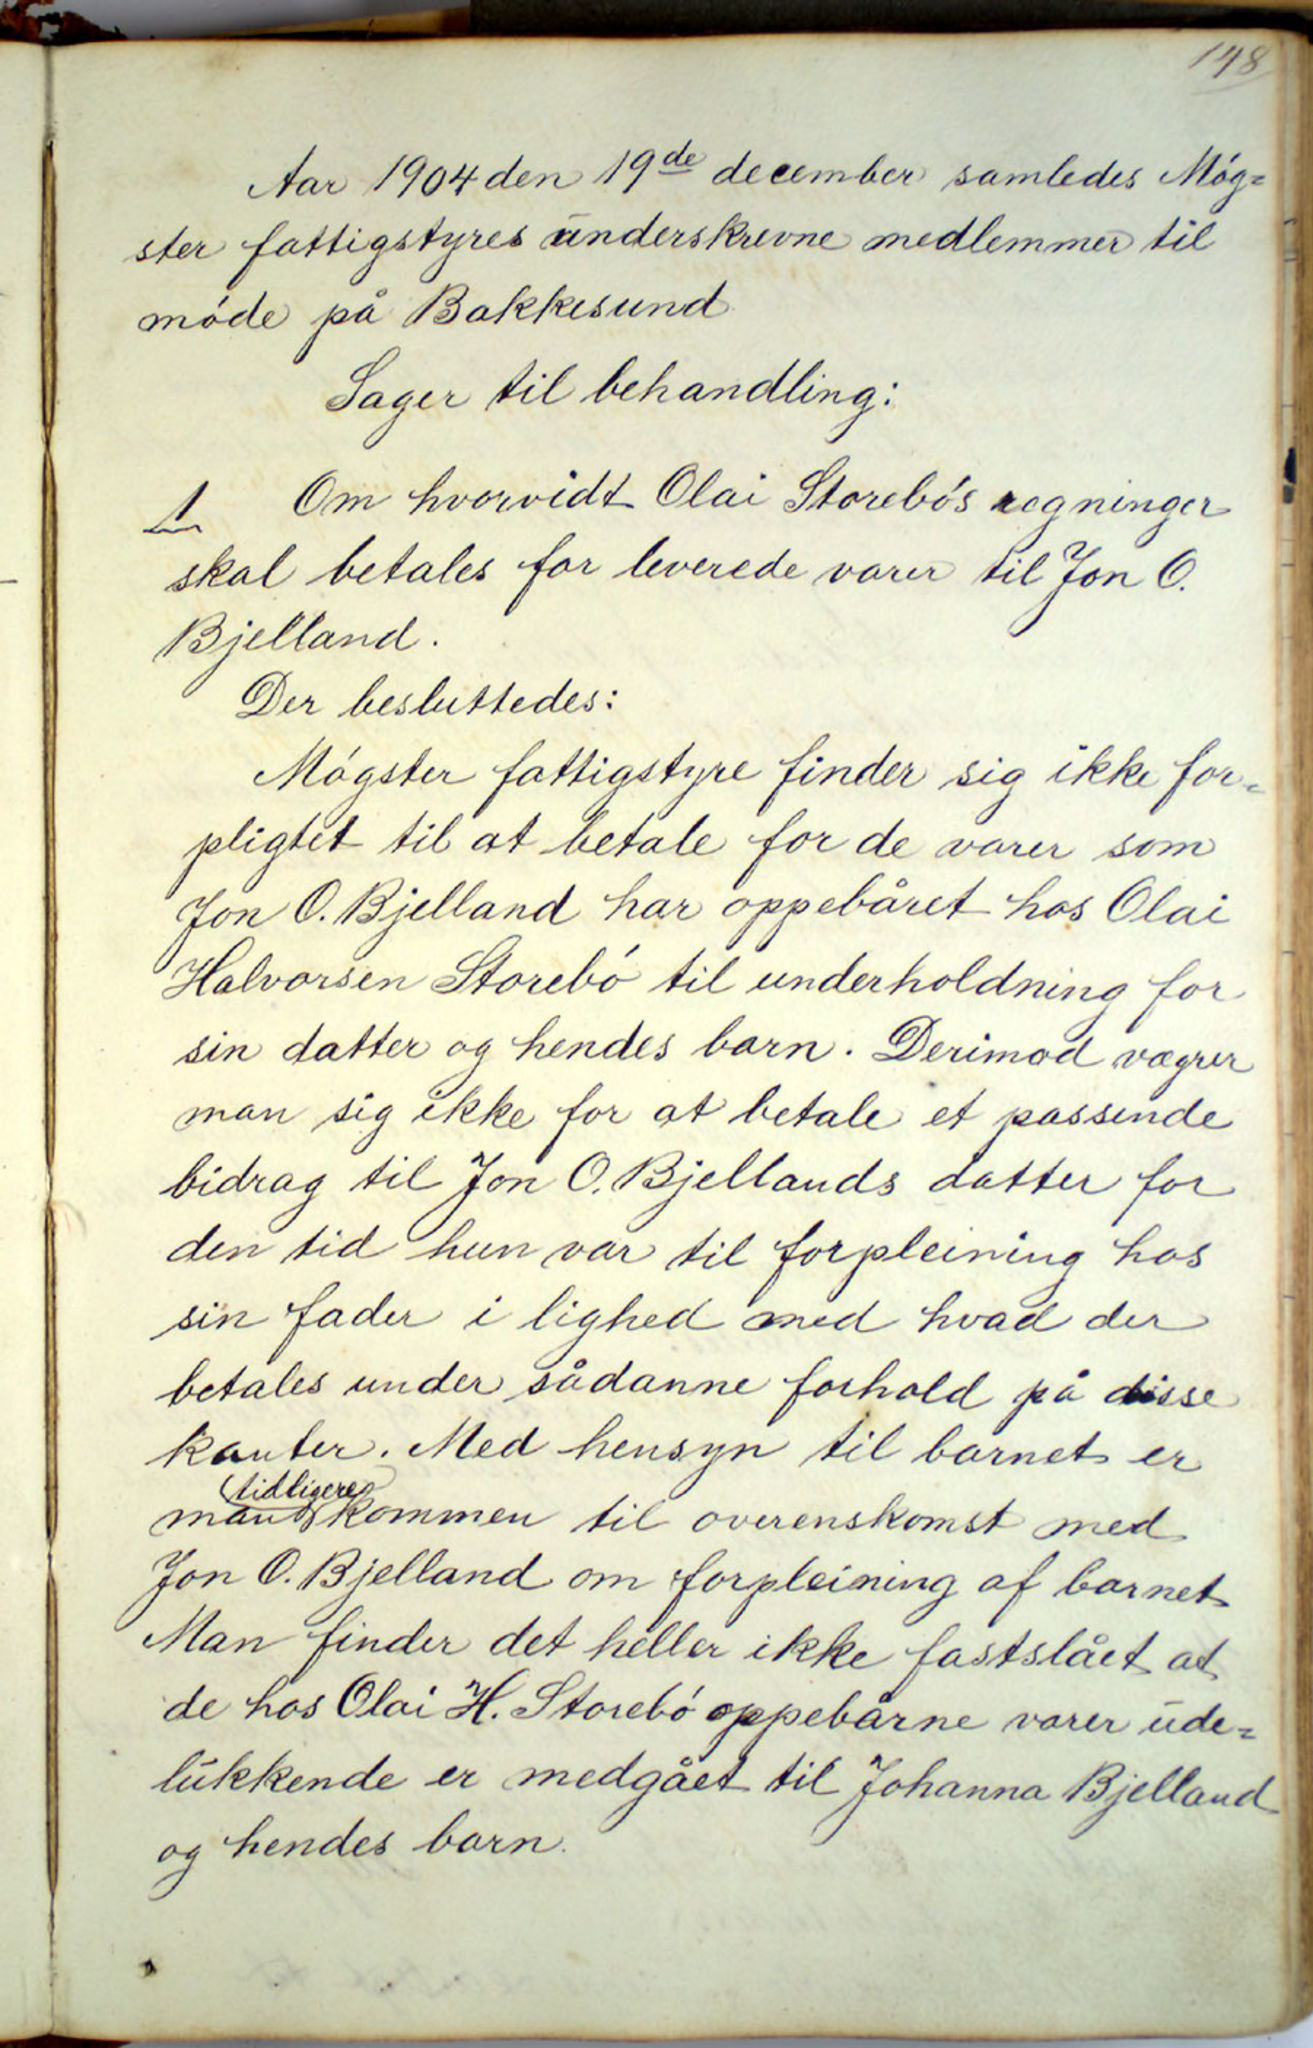 148
Aar 1904 den 19de december samledes Móg=
ster fattigstyres underskrevne medlemmer til
móde på Bakkesund
Sager til behandling:
1 Om hvorvidt Olai Storebós regninger
skal betales for leverede varer til Jon O.
Bjelland.
Der besluttedes:
Mógster fattigstyre finder sig ikke for=
pligtet til at betale for de varer som
Jon O. Bjelland har oppebåret hos Olai
Halvorsen Storebó til underholdning for
sin datter og hendes barn. Derimod vægrer
man sig ikke for at betale et passende
bidrag til Jon O. Bjellands datter for
den tid hun var til forpleining hos
sin fader i lighed med hvad der
betales under sådanne forhold på disse
kanter. Med hensyn til barnet er
tidligere
man kommen til overenskomst med
Jon O. Bjelland om forpleining af barnet
Man finder det heller ikke fastslået at
de hos Olai H. Storebó oppebårne varer ude=
lukkende er medgået til Johanna Bjelland
og hendes barn.